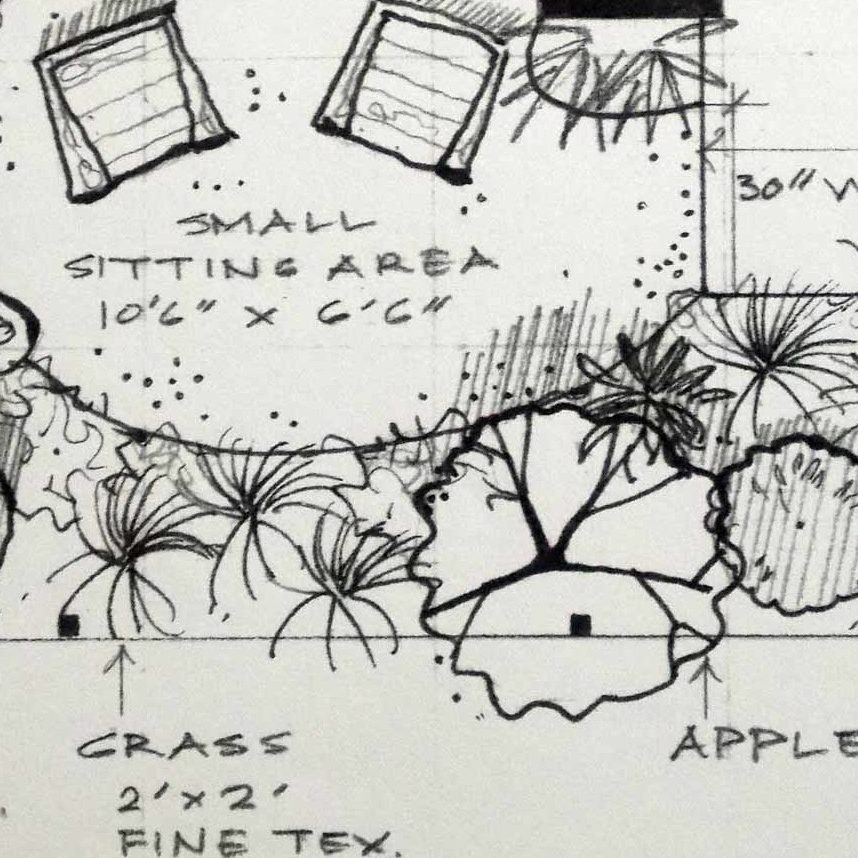 30"
SMALL
SITTING AREA
10'6" x 6'6"
GRASS
2'x2'
FINE TEX.
APPLE